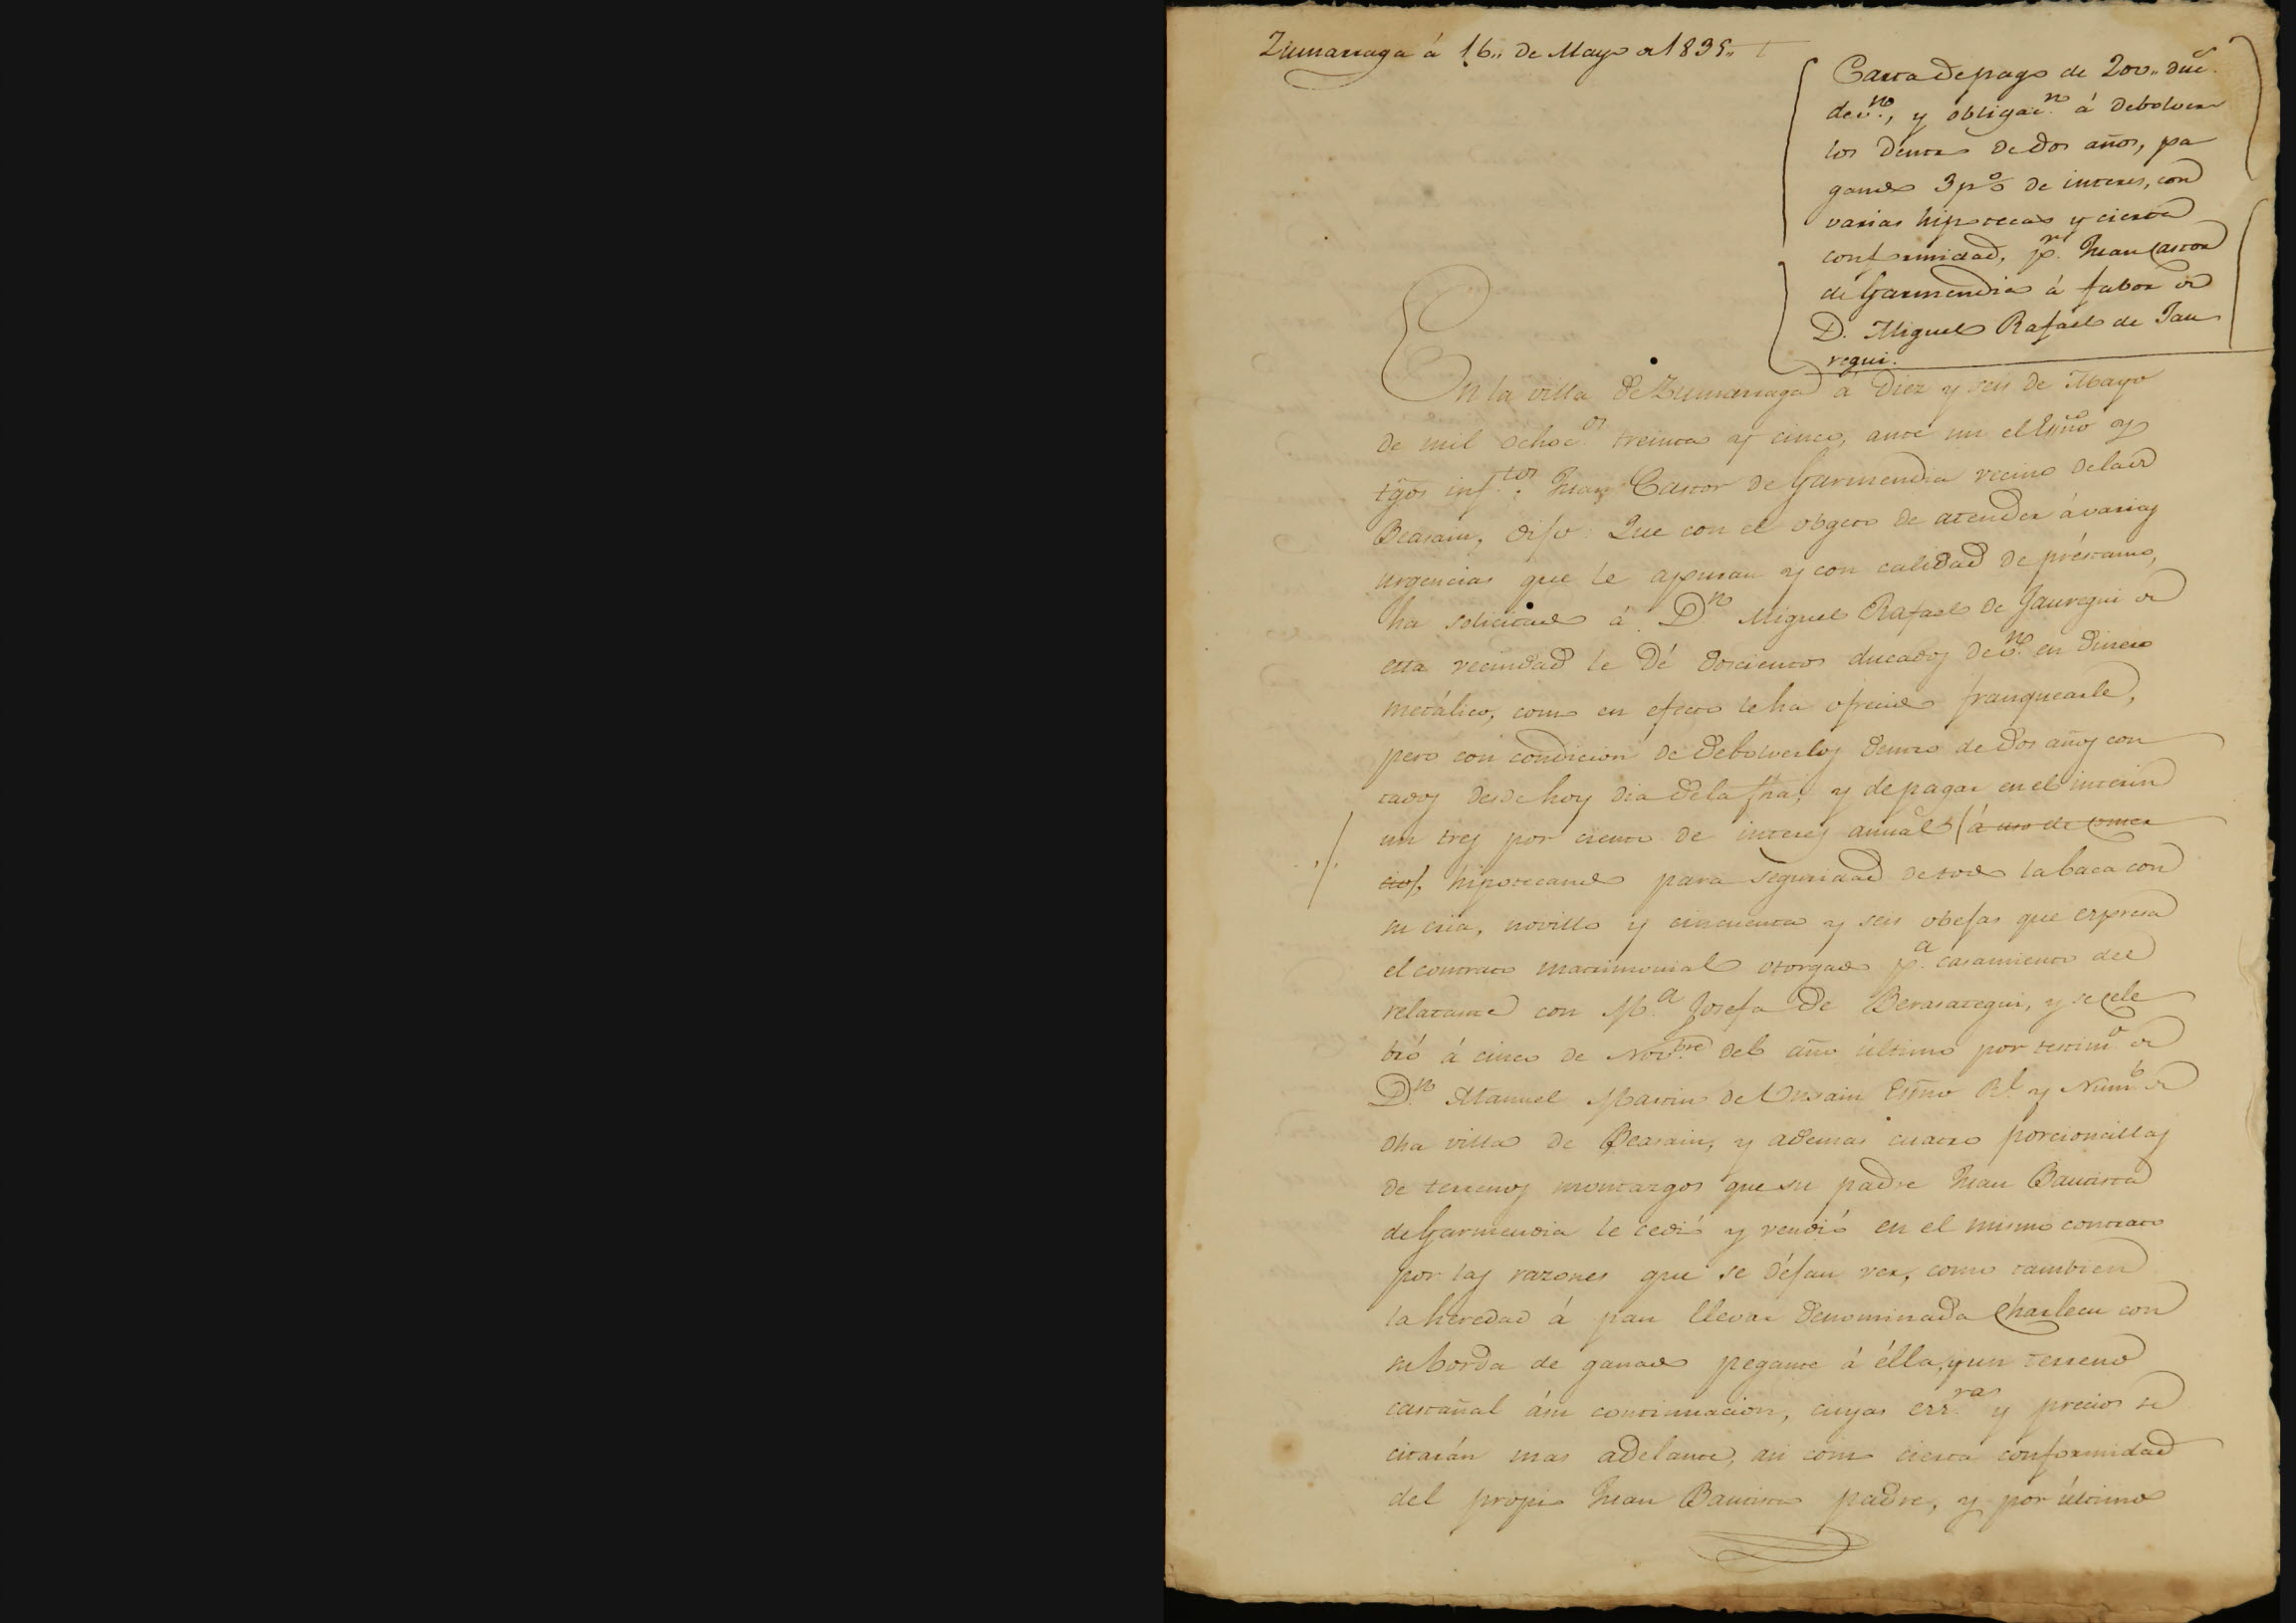 Zumarraga á 16,, de Mayo de 1835,,
Carta de pago de 200,, duc.^s
de v.^n, y obligac.^n á debolver
los dentro de dos años, pa
gando 3 p% de interes, con
varias hipotecas y cierta
conformidad, p.^r Juan Castor
de Garmendia á fabor de
D. Miguel Rafael de Jau
regui.
En la villa de Zumarraga á Diez y seis de Mayo
de mil ochoc.^os treinta y cinco, ante mi el Esño y
tgos inf.^tos Juan Castor de Garmendia vecino de la de
Beasain, dijo: Que con el obgeto de atender á varias
urgencias que le apuran y con calidad de préstamo,
ha solicitado á D.^n Miguel Rafael de Jauregui de
esta vecindad le dé doscientos ducados de v.^n en dinero
metálico, como en efecto le ha ofrecido franquearle,
pero con condicion de debolverlos dentro de dos años con
tados desde hoy dia de la fha, y de pagar en el interin
un tres por ciento de interes annual (á uso de comer
cio), hipotecando para seguridad de todo la baca con
su cria, novillo y cincuenta y seis obejas que expresa
el contrato matrimonial otorgado p.^a casamiento del
relatante con M.^a Josefa de Berasategui, y se cele
bró á cinco de Nov.^bre del año último por testim.^o de
D.^n Manuel Martin de Unsain Esño R.^l y Num.^l de
dha villa de Beasain, y ademas cuatro porcioncillas
de terrenos montazgos que su padre Juan Bautista
de Garmendia le cedió y vendió en el mismo contrato
por las razones que se déjan ver, como tambien
la heredad á pan llevar denominada Charlecu con
su borda de ganado pegante á élla, y un terreno
castañal ásu continuacion, cuyas err.^ras y precios se
citarán mas adelante, asi como cierta conformidad
del propio Juan Bautista padre, y por último